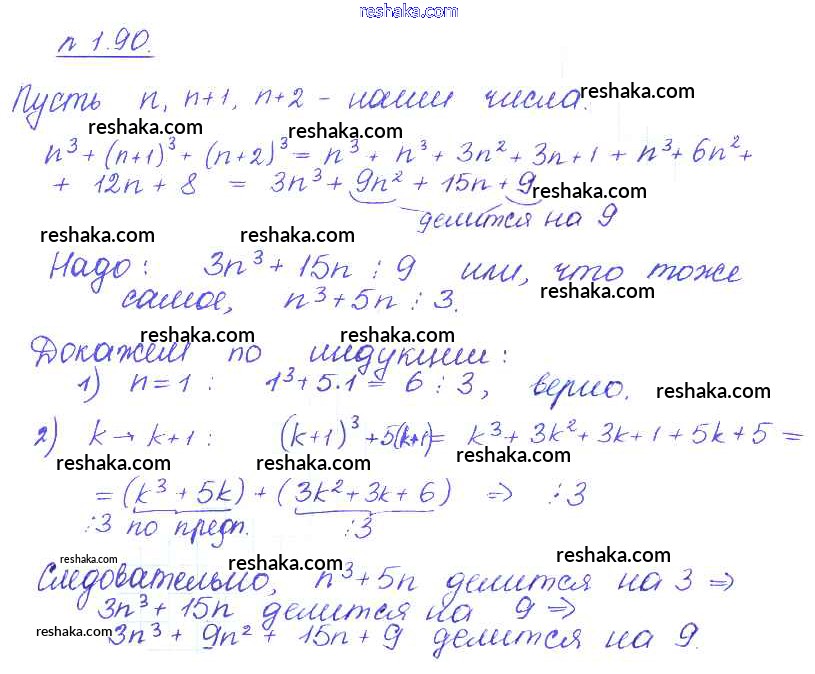 reshaka.com
n 1.90.
Пусть n, n+1, n+2 - наши числа.
reshaka.com
reshaka.com reshaka.com
n³ + (n+1)³ + (n+2)³ = n³ + n³ + 3n² + 3n + 1 + n³ + 6n² +
+ 12n + 8 = 3n³ + 9n² + 15n + 9
reshaka.com
делится на 9
reshaka.com reshaka.com
Надо: 3n³ + 15n ⋮ 9 или, что тоже
reshaka.com
самое, n³ + 5n ⋮ 3.
reshaka.com reshaka.com
Докажем по индукции:
1) n = 1 : 1³ + 5·1 = 6 ⋮ 3, верно.
reshaka.com
2) k → k+1 : (k+1)³ + 5(k+1) = k³ + 3k² + 3k + 1 + 5k + 5 =
reshaka.com reshaka.com reshaka.com
= (k³ + 5k) + (3k² + 3k + 6) ⇒ ⋮ 3
⋮3 по предп. ⋮3
reshaka.com reshaka.com reshaka.com
Следовательно, n³ + 5n делится на 3 ⇒
3n³ + 15n делится на 9 ⇒
reshaka.com reshaka.com reshaka.com
3n³ + 9n² + 15n + 9 делится на 9.